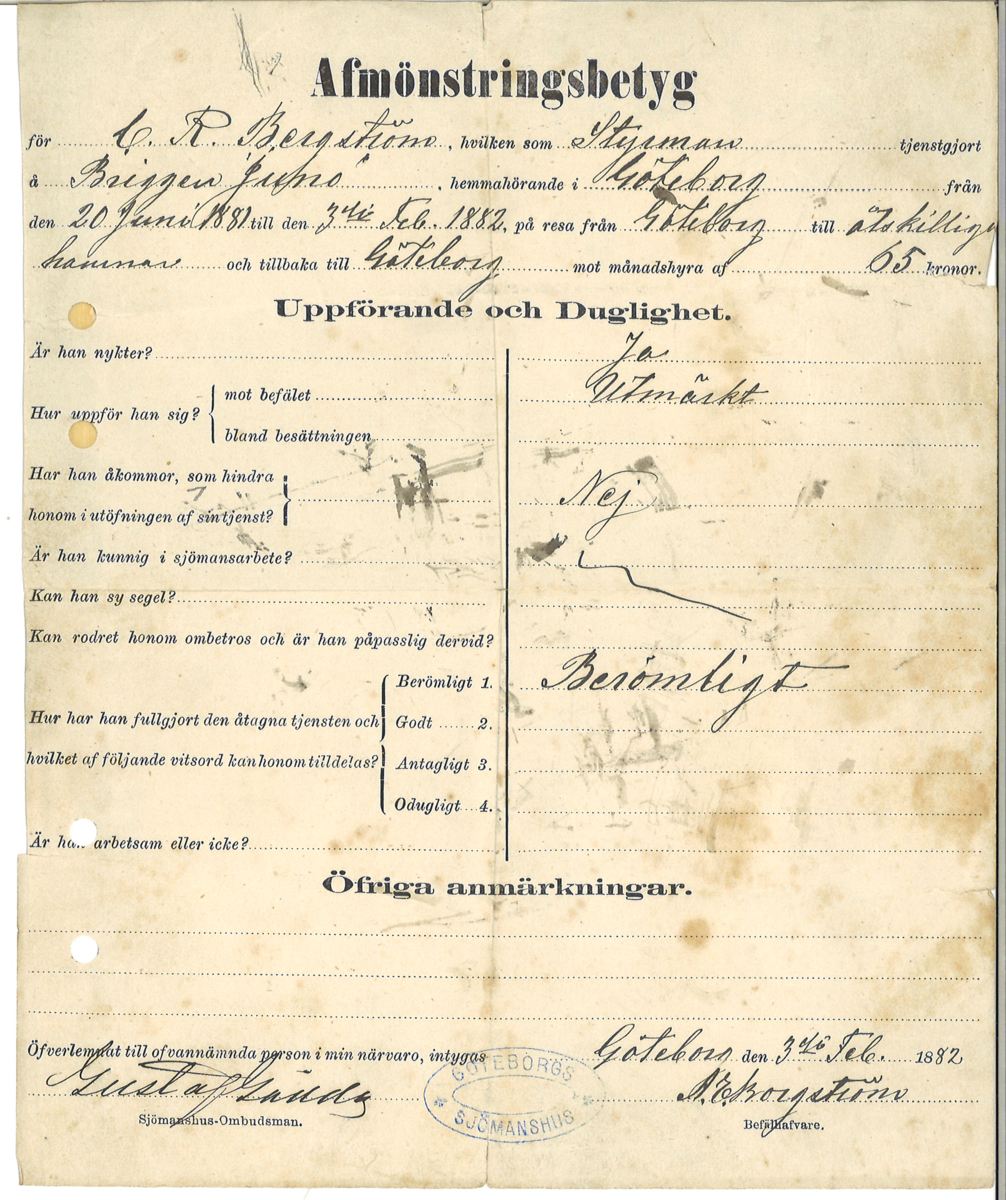 Afmönstringsbetyg
för C. R. Bergström, hvilken som Styrman tjenstgjort
å Briggen Juno, hemmahörande i Göteborg från
den 20 Juni 1881 till den 3die Feb. 1882, på resa från Göteborg till åtskilliga
hamnar och tillbaka till Göteborg mot månadshyra af 65 kronor.
Uppförande och Duglighet.
Är han nykter? Ja
Hur uppför han sig? mot befälet Utmärkt
bland besättningen
Har han åkommor, som hindra
honom i utöfningen af sin tjenst? Nej
Är han kunnig i sjömansarbete?
Kan han sy segel?
Kan rodret honom ombetros och är han påpasslig dervid?
Berömligt 1. Berömligt
Hur har han fullgjort den åtagna tjensten och Godt 2.
hvilket af följande vitsord kan honom tilldelas? Antagligt 3.
Odugligt 4.
Är han arbetsam eller icke?
Öfriga anmärkningar.
Öfverlemnat till ofvannämnda person i min närvaro, intygas Göteborg den 3die Feb. 1882
Gustaf
GÖTEBORGS
SJÖMANSHUS
Sjömanshus-Ombudsman.
Befälhafvare.